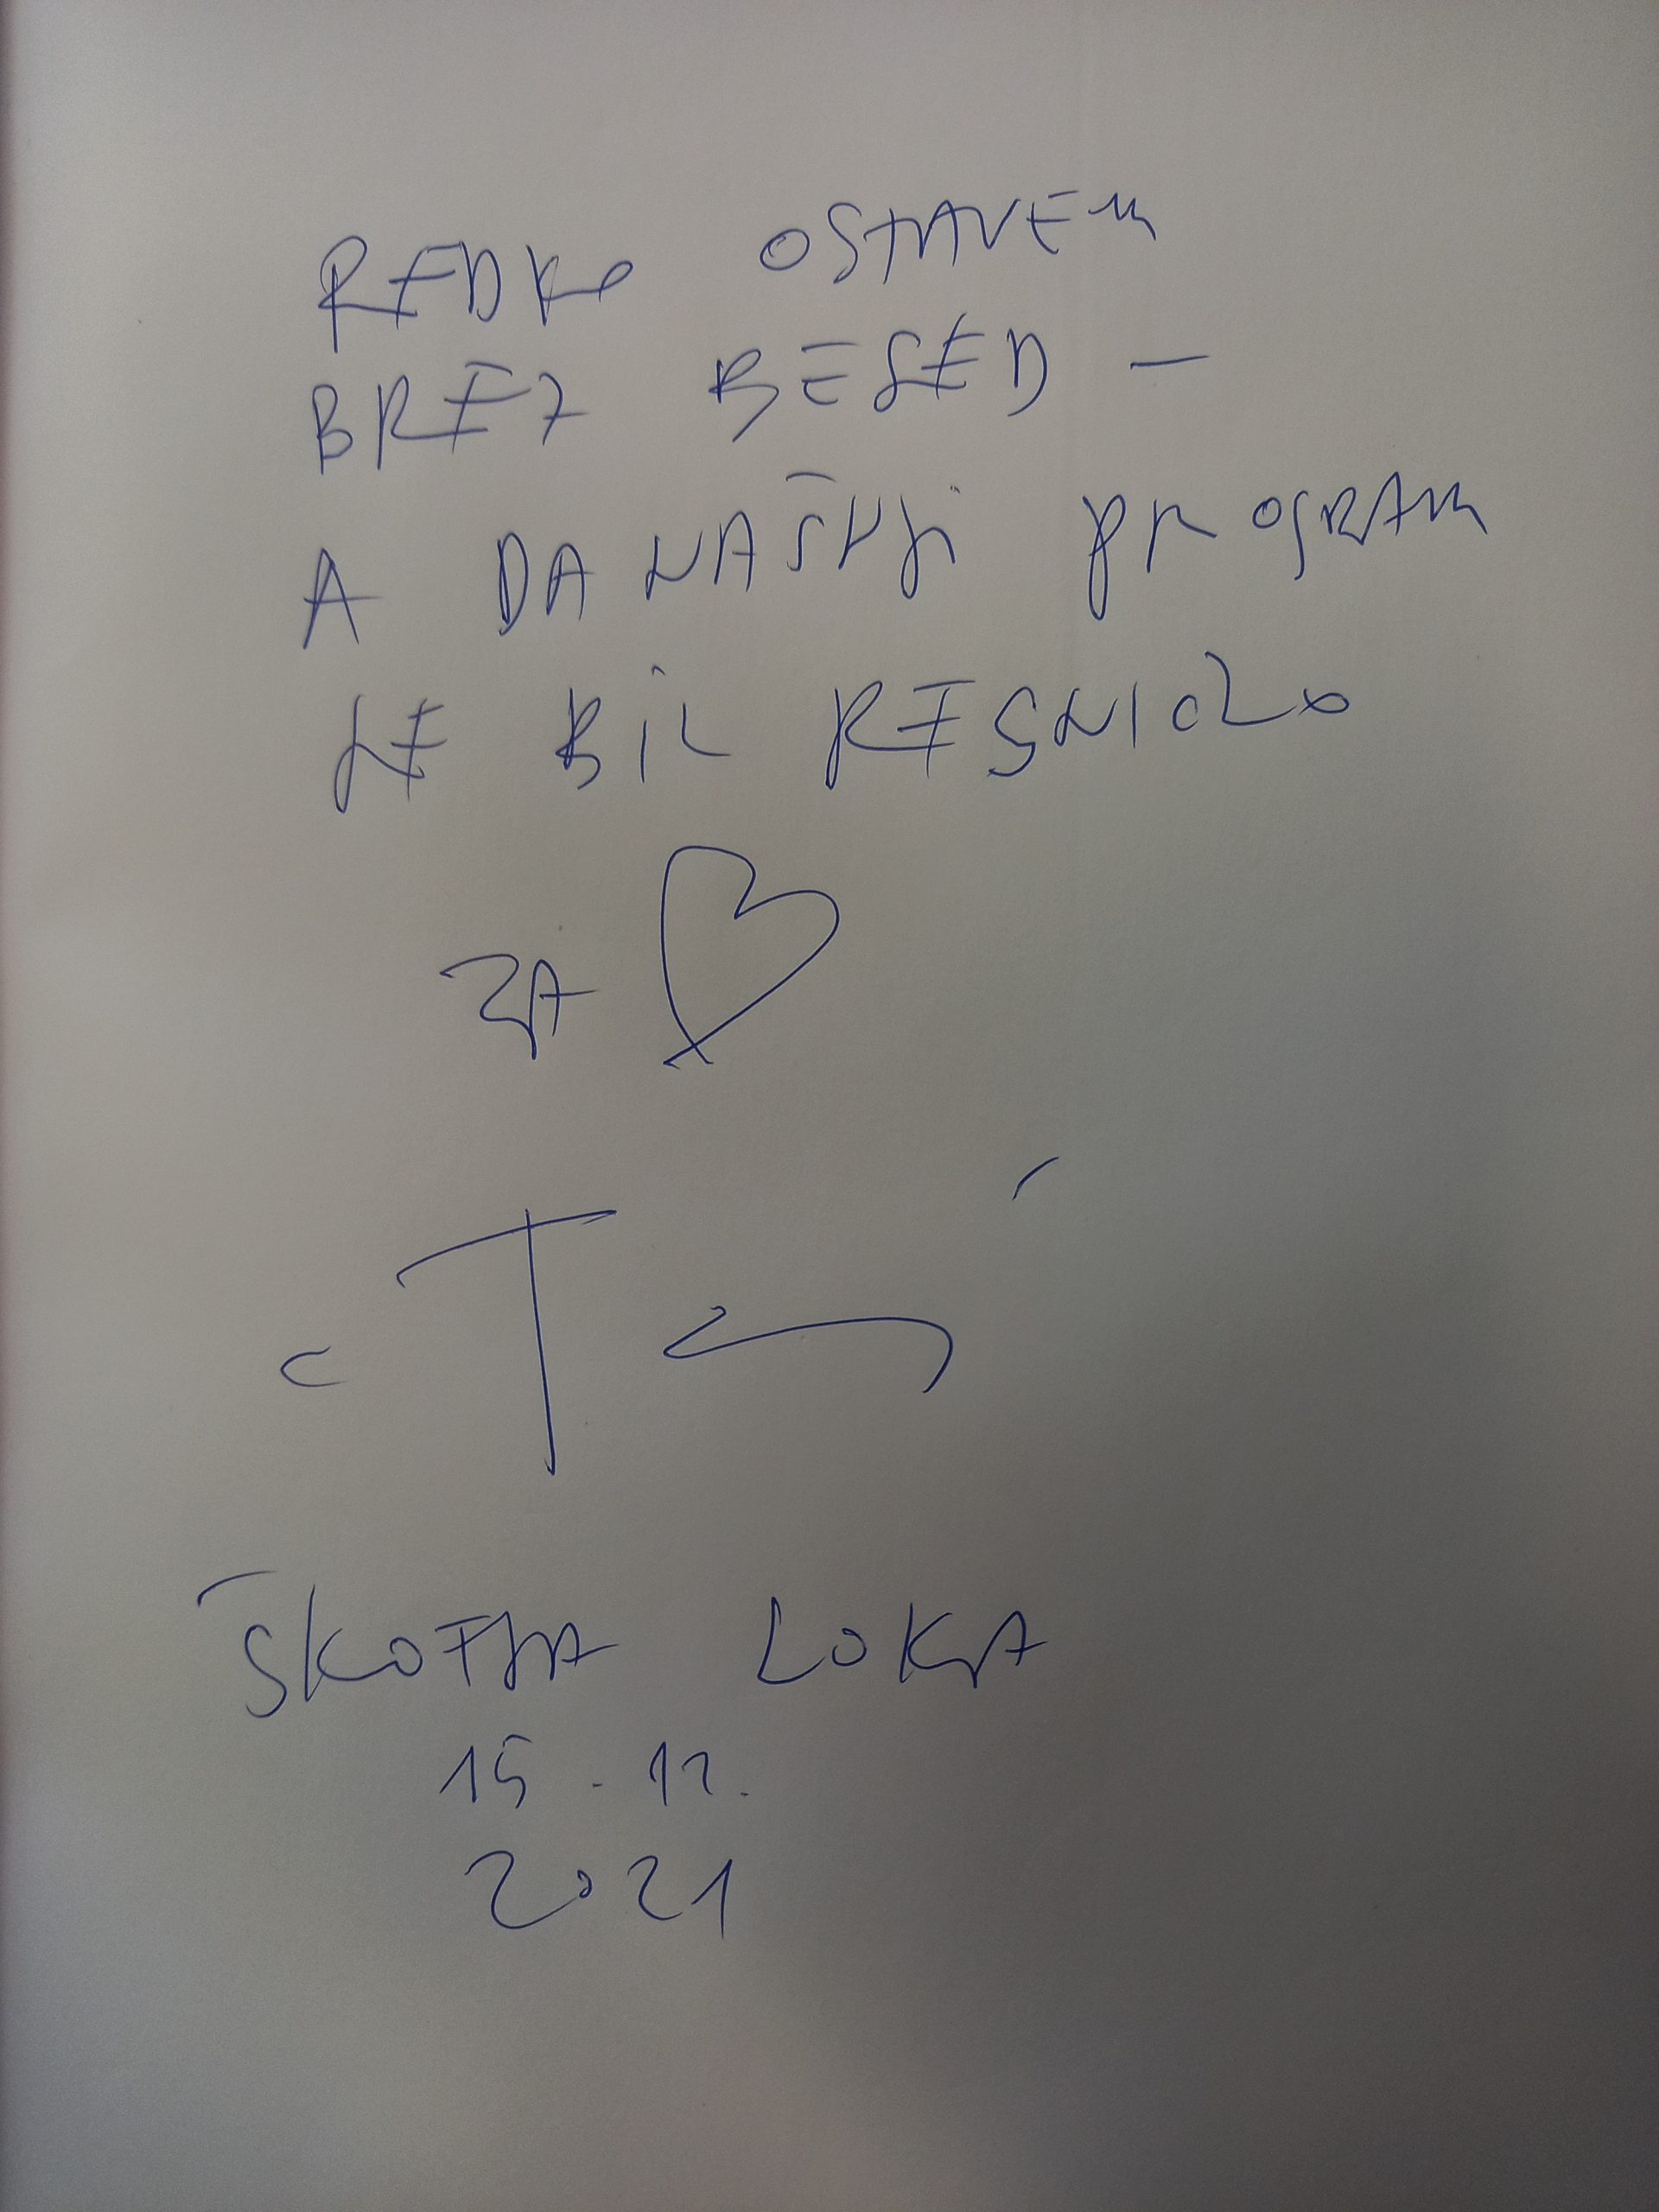 REDKO OSTANEM
BREZ BESED -
A DANAŠNJI PROGRAM
JE BIL RESNIČNO
ZA
ŠKOFJA LOKA
15. 12.
2021